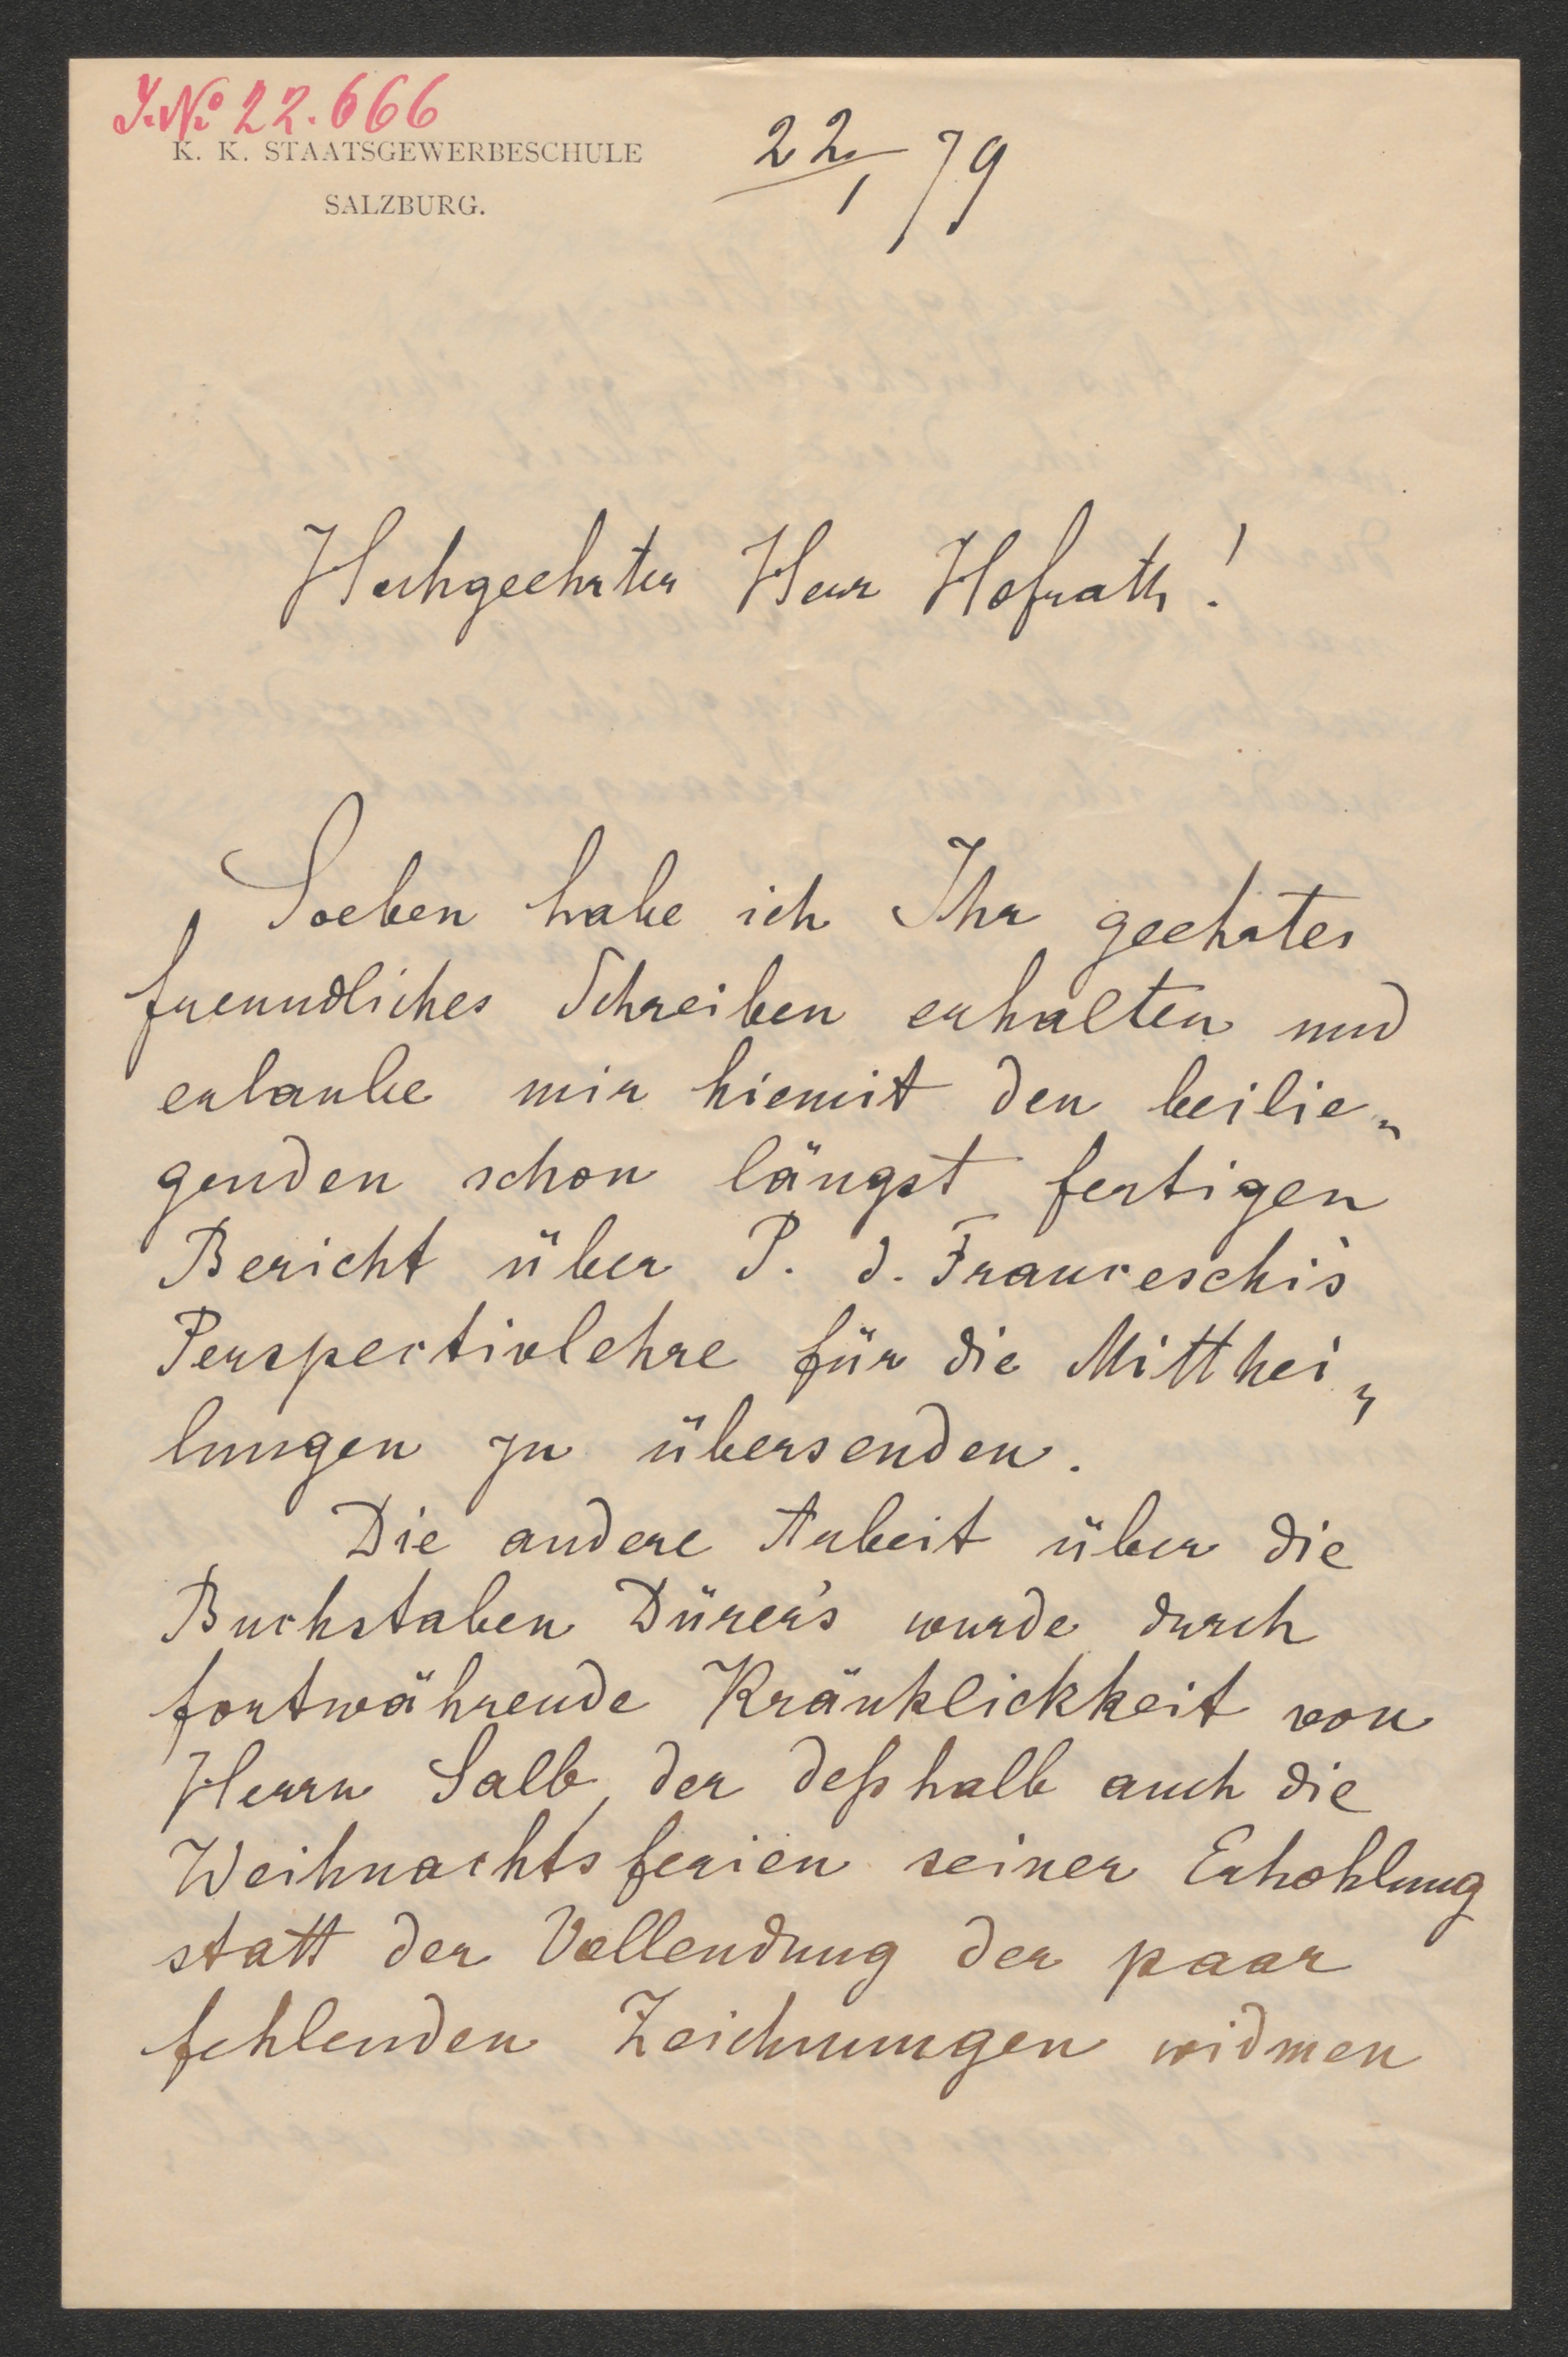 J. No 22.666
K. K. STAATSGEWERBESCHULE
SALZBURG.
22/1 79
Hochgeehrter Herr Hofrath!
Soeben habe ich Ihr geehrtes
freundliches Schreiben erhalten und
erlaube mir hiemit den beilie„
genden schon längst fertigen
Bericht über P. d. Franceschi's
Perspectivlehre für die Mitthei„
lungen zu übersenden.
Die andere Arbeit über die
Buchstaben Dürer's wurde durch
fortwährende Kränklickkeit von
Herrn Salb, der deßhalb auch die
Weihnachtsferien seiner Erhohlung
statt der Vollendung der paar
fehlenden Zeichnungen widmen